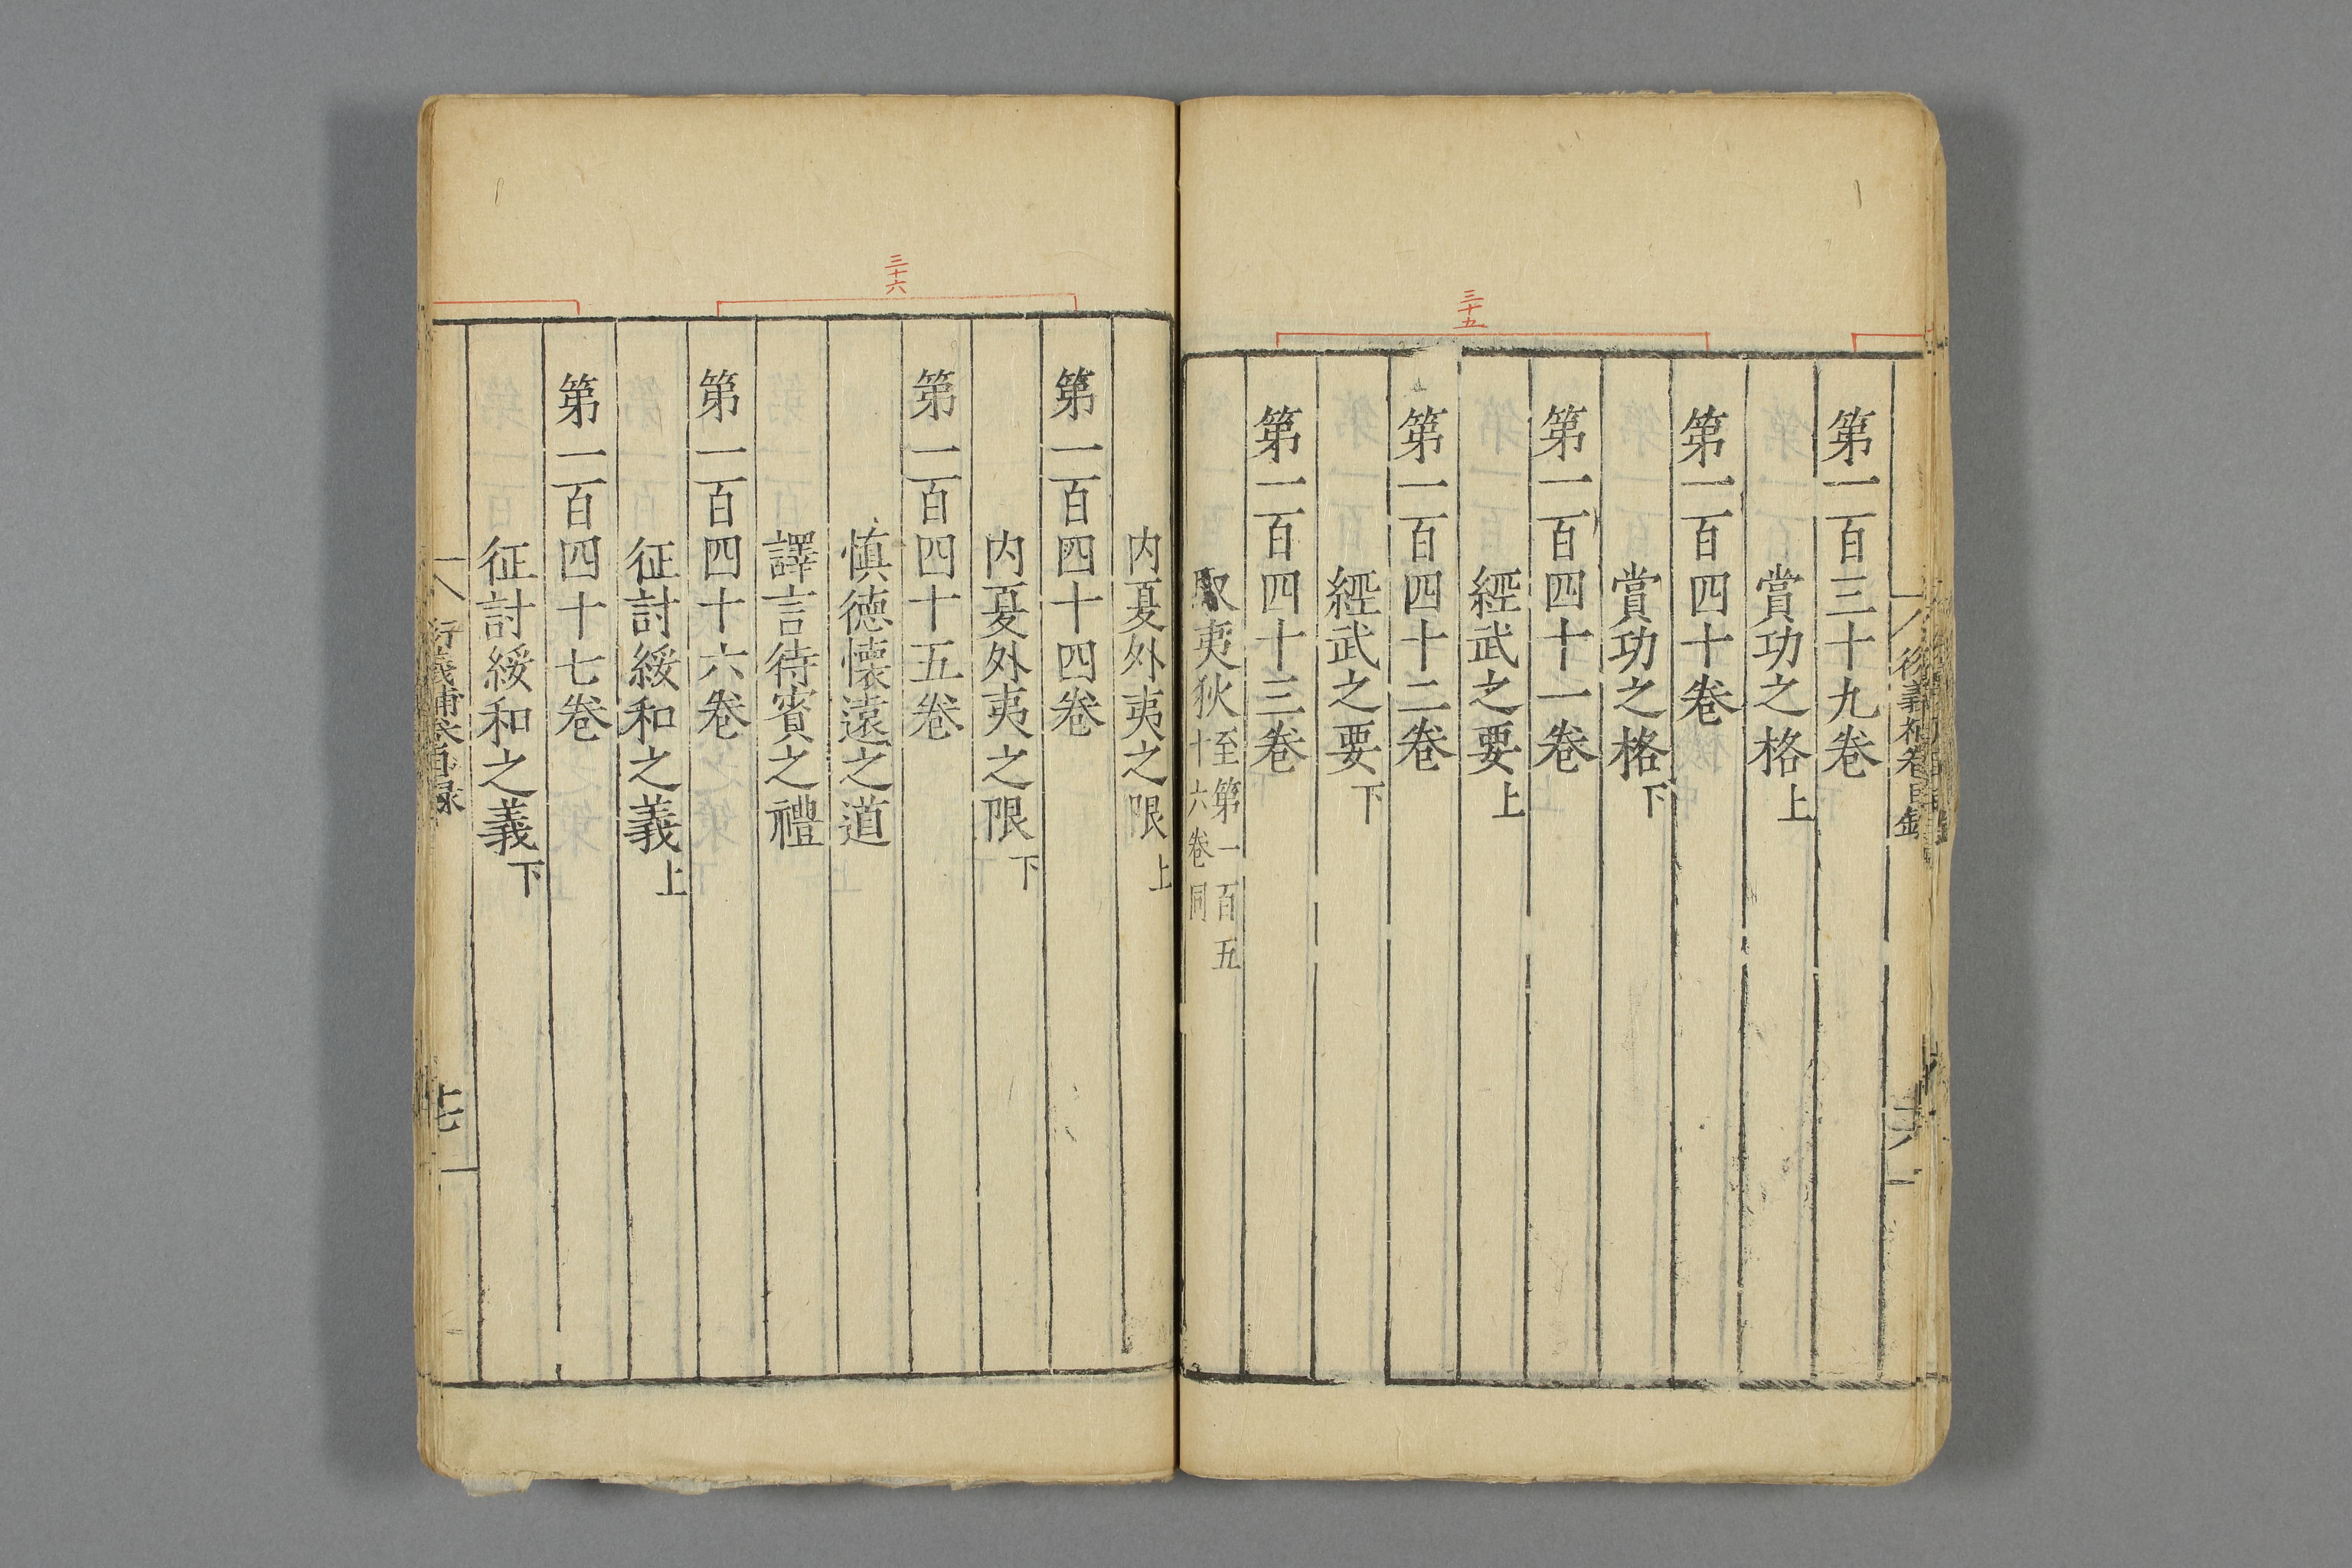 第一百三十九卷
賞功之格上
第一百四十卷
賞功之格下
第一百四十一卷
經武之要上
第一百四十二卷
經武之要下
第一百四十三卷
馭夷狄至第一百五十六卷同
三十五
内夏外夷之限上
第一百四十四卷
内夏外夷之限下
第一百四十五卷
慎德懷遠之道
譯言待賓之禮
第一百四十六卷
征討綏和之義上
第一百四十七卷
征討綏和之義下
三十六